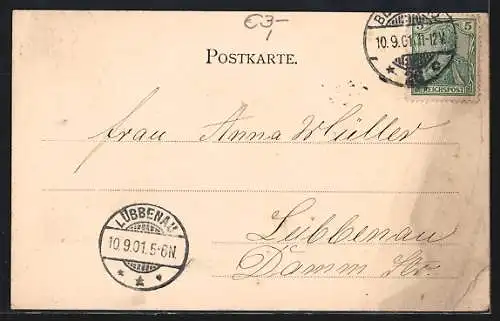 €3,-
5
10.9.01.11-12V.
REICHSPOST
POSTKARTE.
Frau Anna Müller
LÜBBENAU
10.9.01.5-6N.
Lübbenau
Damm Str.